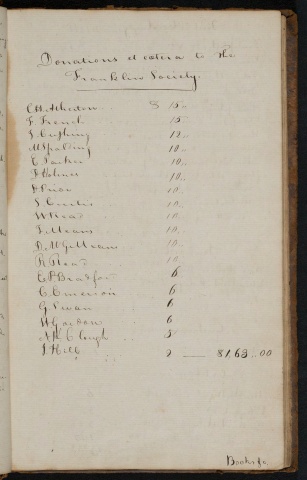 Donations et cetera to the
Franklin Society.
C.H. Atherton $ 15..
F. French 15..
L. Cushing 12..
M. Spalding 10..
E. Parker 10..
D. Holmes 10..
D. Prior 10..
S. Curtis 10..
W. Read 10..
J. Means 10..
D. McG. Means 10..
R. Read 10
E.P. Bradford 6
C. Emerson 6
G. Swan 6
W. Gordon 6
A.H. Clough 5
J. Hill 2 — 8163..00
Books &c.